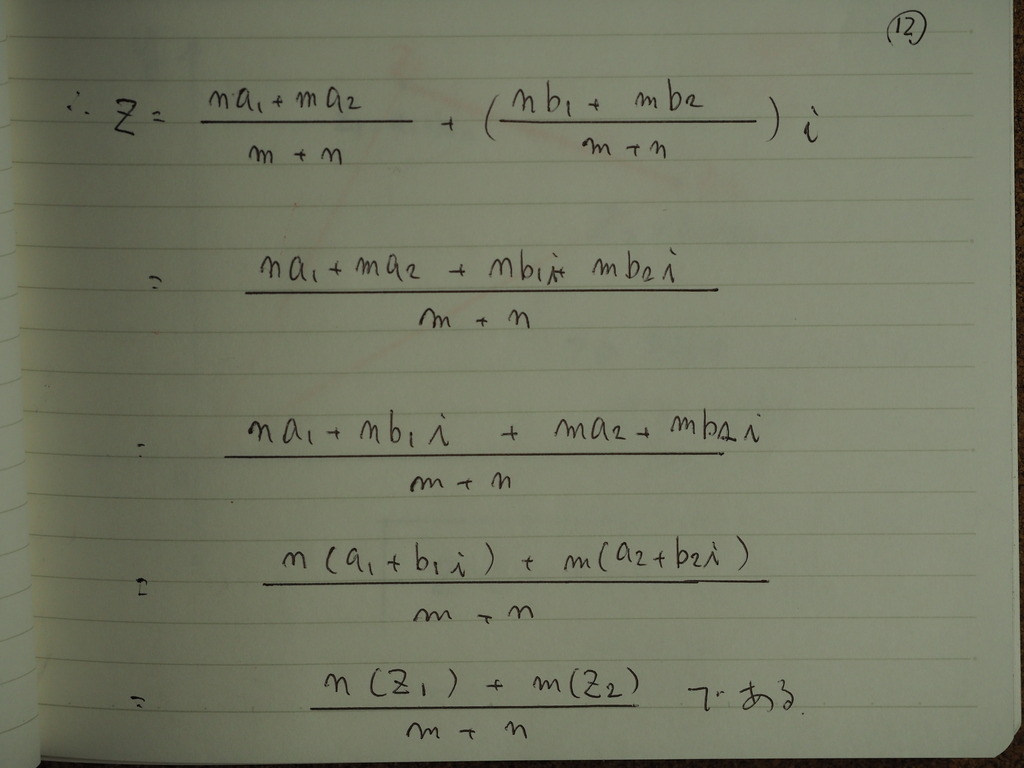 ⑫
∴ Z = (na₁ + ma₂)/(m + n) + ((nb₁ + mb₂)/(m + n)) i
= (na₁ + ma₂ + nb₁i + mb₂i)/(m + n)
= (na₁ + nb₁i + ma₂ + mb₂i)/(m + n)
= (n(a₁ + b₁i) + m(a₂ + b₂i))/(m + n)
= (n(Z₁) + m(Z₂))/(m + n) である.